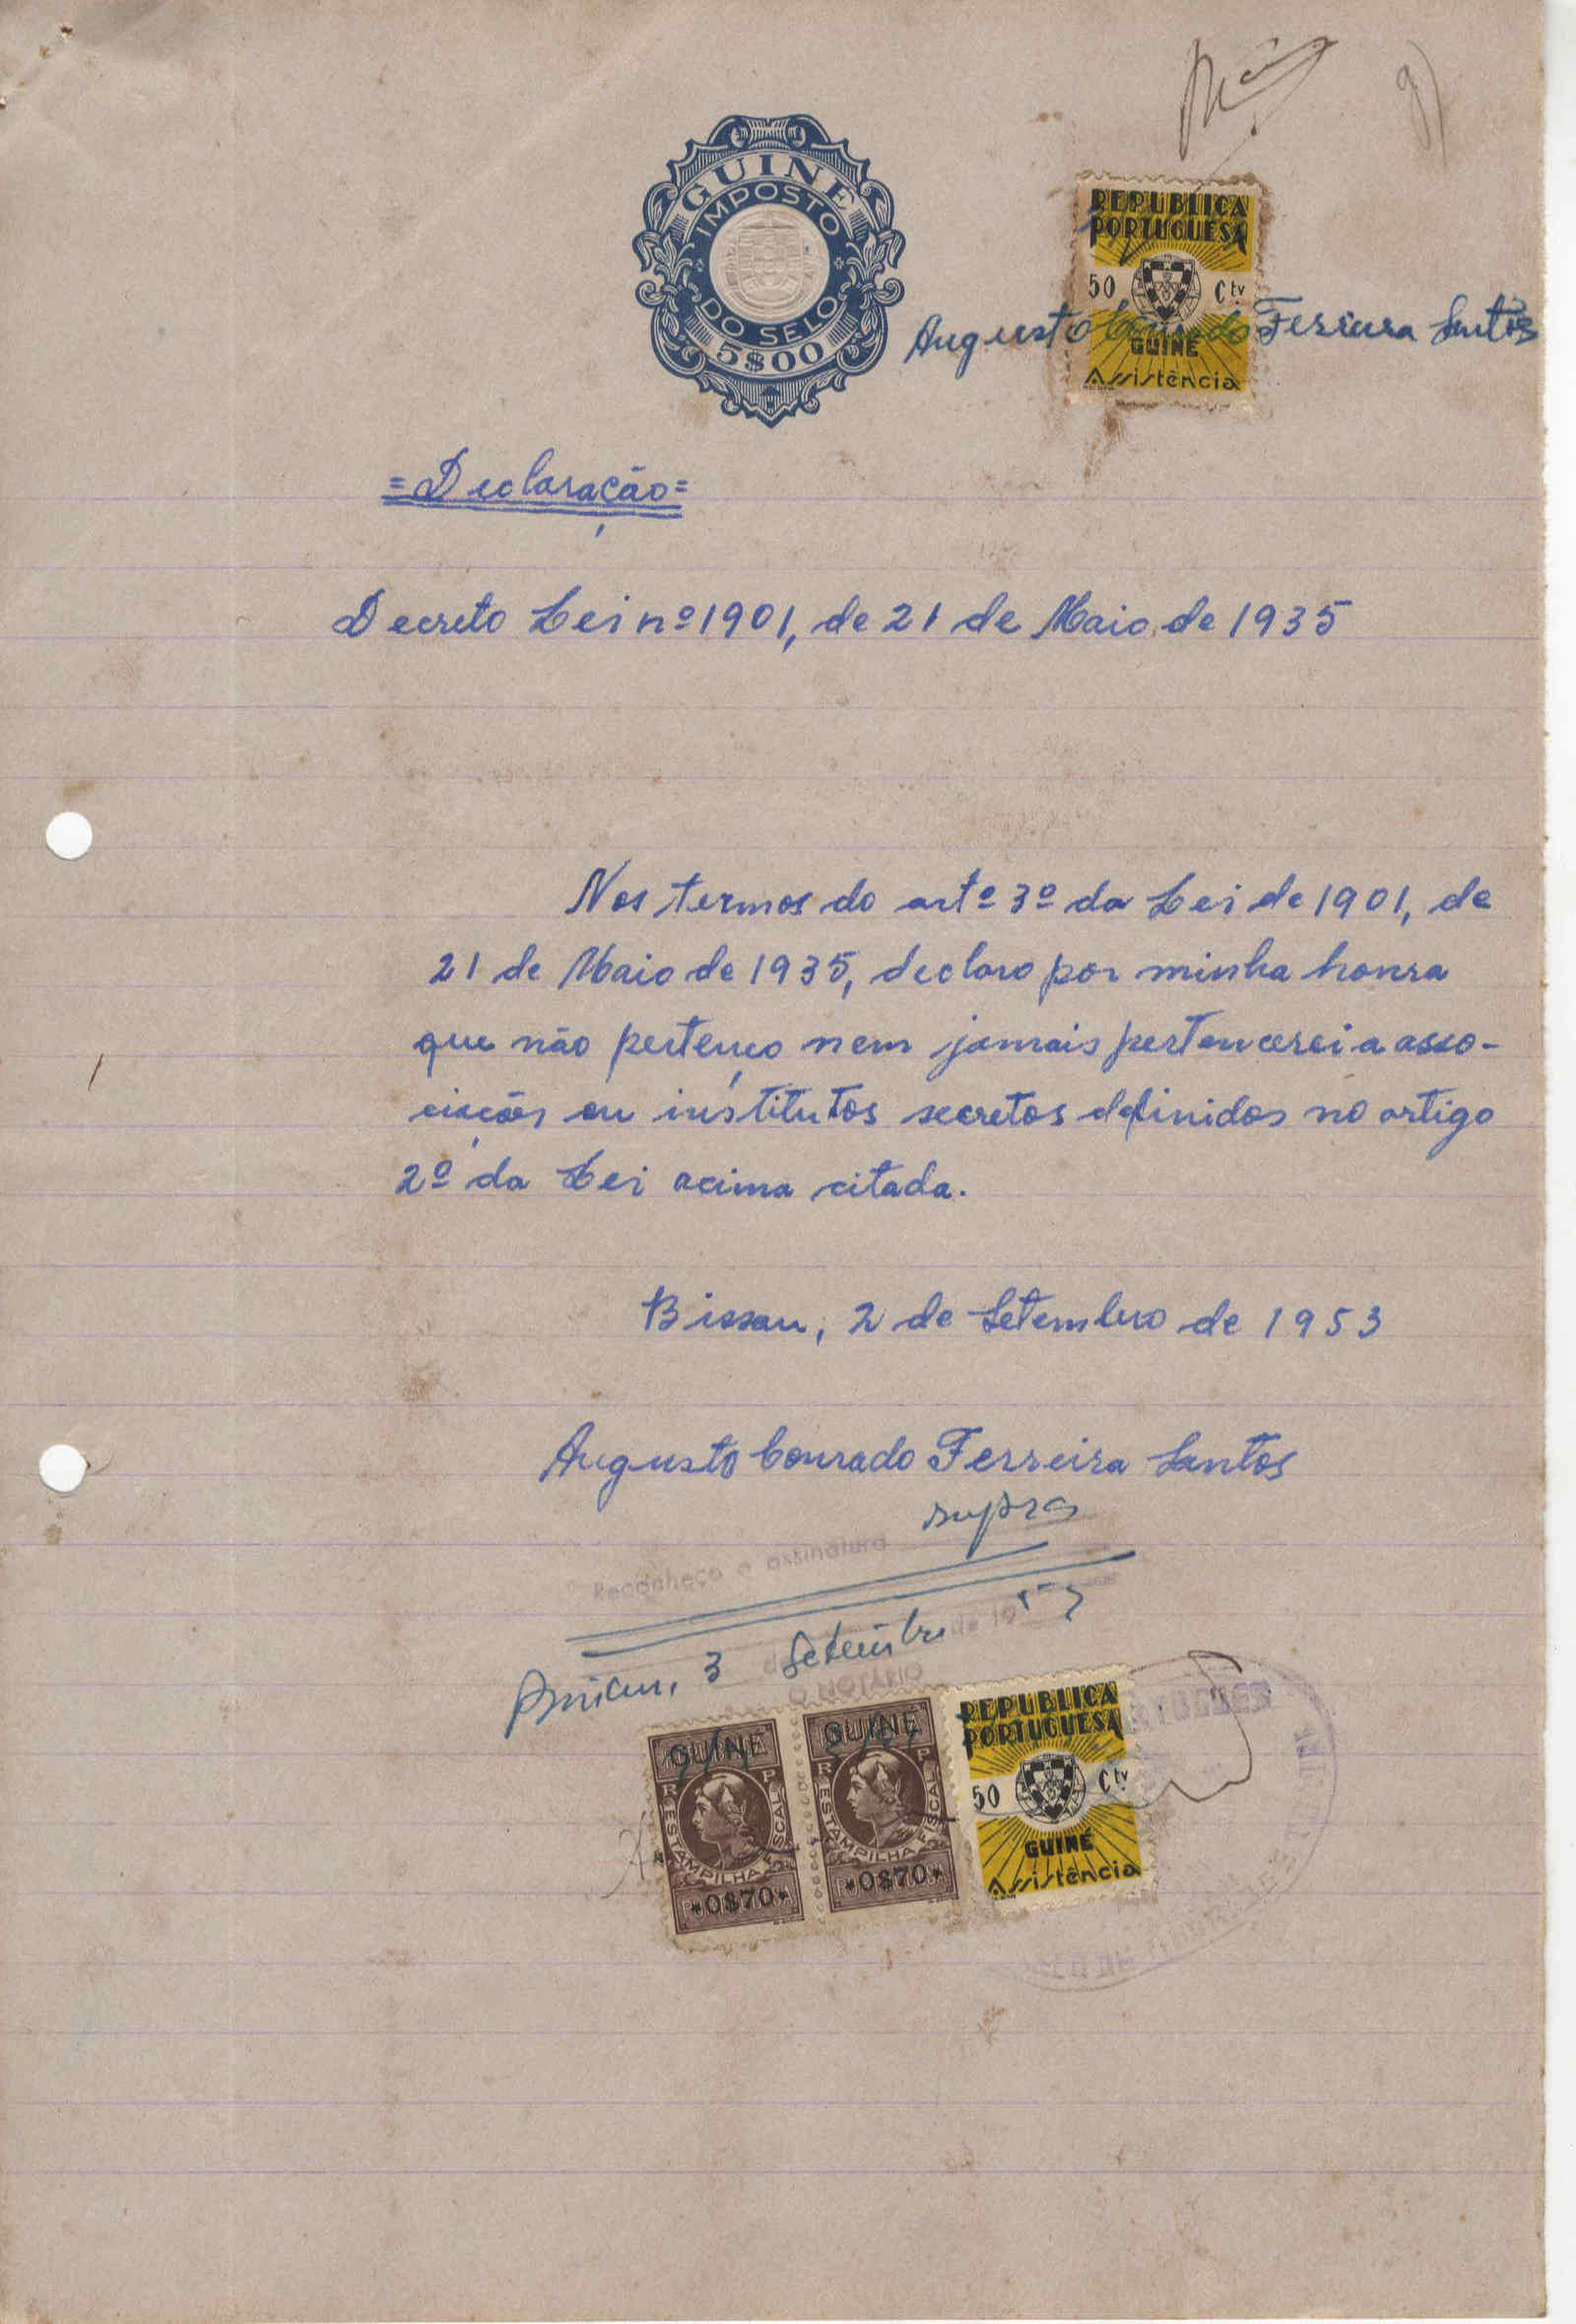 9)
GUINÉ
IMPOSTO
DO SELO
5$00
REPUBLICA
PORTUGUESA
50 Ctv
GUINÉ
Assistência
Augusto Conrado Ferreira Santos
=Declaração=
Decreto Lei nº 1901, de 21 de Maio de 1935
Nos termos do artº 3º da Lei de 1901, de
21 de Maio de 1935, declaro por minha honra
que não pertenço nem jamais pertencerei a asso-
ciações ou institutos secretos definidos no artigo
2º da Lei acima citada.
Bissau, 2 de Setembro de 1953
Augusto Conrado Ferreira Santos
supra
Reconheço a assinatura
Bissau, 3 de Setembro de 1953
O NOTÁRIO
GUINÉ
R P
ESTAMPILHA FISCAL
*0$70*
GUINÉ
R P
ESTAMPILHA FISCAL
*0$70*
REPUBLICA
PORTUGUESA
50 Ctv
GUINÉ
Assistência